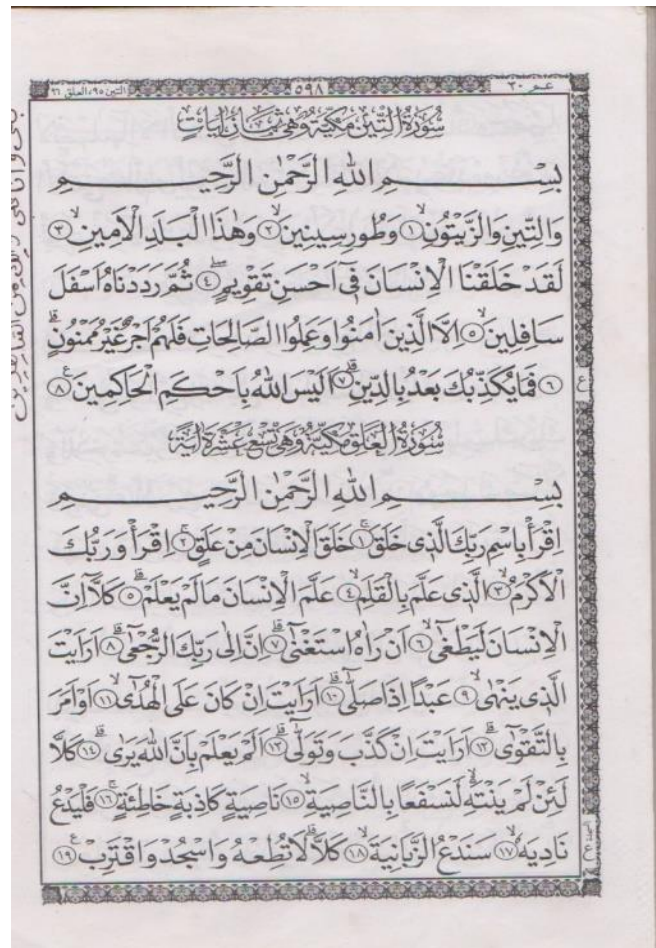 عم ٣٠ ٥٩٨ التين ٩٥، العلق ٩٦
سُورَةُ التِّينِ مَكِّيَّةٌ وَهِيَ ثَمَانُ اٰيَاتٍ
بِسْمِ اللهِ الرَّحْمٰنِ الرَّحِيمِ
وَالتِّينِ وَالزَّيْتُونِۙ ١ وَطُورِ سِينِينَۙ ٢ وَهٰذَا الْبَلَدِ الْاَمِينِۙ ٣
لَقَدْ خَلَقْنَا الْاِنْسَانَ فِٓى اَحْسَنِ تَقْوِيمٍۖ ٤ ثُمَّ رَدَدْنَاهُ اَسْفَلَ
سَافِلِينَۙ ٥ اِلَّا الَّذِينَ اٰمَنُوا وَعَمِلُوا الصَّالِحَاتِ فَلَهُمْ اَجْرٌ غَيْرُ مَمْنُونٍۗ
٦ فَمَا يُكَذِّبُكَ بَعْدُ بِالدِّينِۗ ٧ اَلَيْسَ اللهُ بِاَحْكَمِ الْحَاكِمِينَ ٨
ع
سُورَةُ الْعَلَقِ مَكِّيَّةٌ وَهِيَ تِسْعَ عَشْرَةَ اٰيَةً
بِسْمِ اللهِ الرَّحْمٰنِ الرَّحِيمِ
اِقْرَأْ بِاسْمِ رَبِّكَ الَّذِى خَلَقَۚ ١ خَلَقَ الْاِنْسَانَ مِنْ عَلَقٍۚ ٢ اِقْرَأْ وَرَبُّكَ
الْاَكْرَمُۙ ٣ الَّذِى عَلَّمَ بِالْقَلَمِۙ ٤ عَلَّمَ الْاِنْسَانَ مَا لَمْ يَعْلَمْۗ ٥ كَلَّٓا اِنَّ
الْاِنْسَانَ لَيَطْغٰىۙ ٦ اَنْ رَاٰهُ اسْتَغْنٰىۗ ٧ اِنَّ اِلٰى رَبِّكَ الرُّجْعٰىۗ ٨ اَرَاَيْتَ
الَّذِى يَنْهٰىۙ ٩ عَبْدًا اِذَا صَلّٰىۗ ١٠ اَرَاَيْتَ اِنْ كَانَ عَلَى الْهُدٰىۙ ١١ اَوْ اَمَرَ
بِالتَّقْوٰىۗ ١٢ اَرَاَيْتَ اِنْ كَذَّبَ وَتَوَلّٰىۗ ١٣ اَلَمْ يَعْلَمْ بِاَنَّ اللهَ يَرٰىۗ ١٤ كَلَّا
لَئِنْ لَمْ يَنْتَهِ لَنَسْفَعًا بِالنَّاصِيَةِۙ ١٥ نَاصِيَةٍ كَاذِبَةٍ خَاطِئَةٍۚ ١٦ فَلْيَدْعُ
نَادِيَهُۙ ١٧ سَنَدْعُ الزَّبَانِيَةَۙ ١٨ كَلَّاۗ لَا تُطِعْهُ وَاسْجُدْ وَاقْتَرِبْ ١٩
السجدة
ع